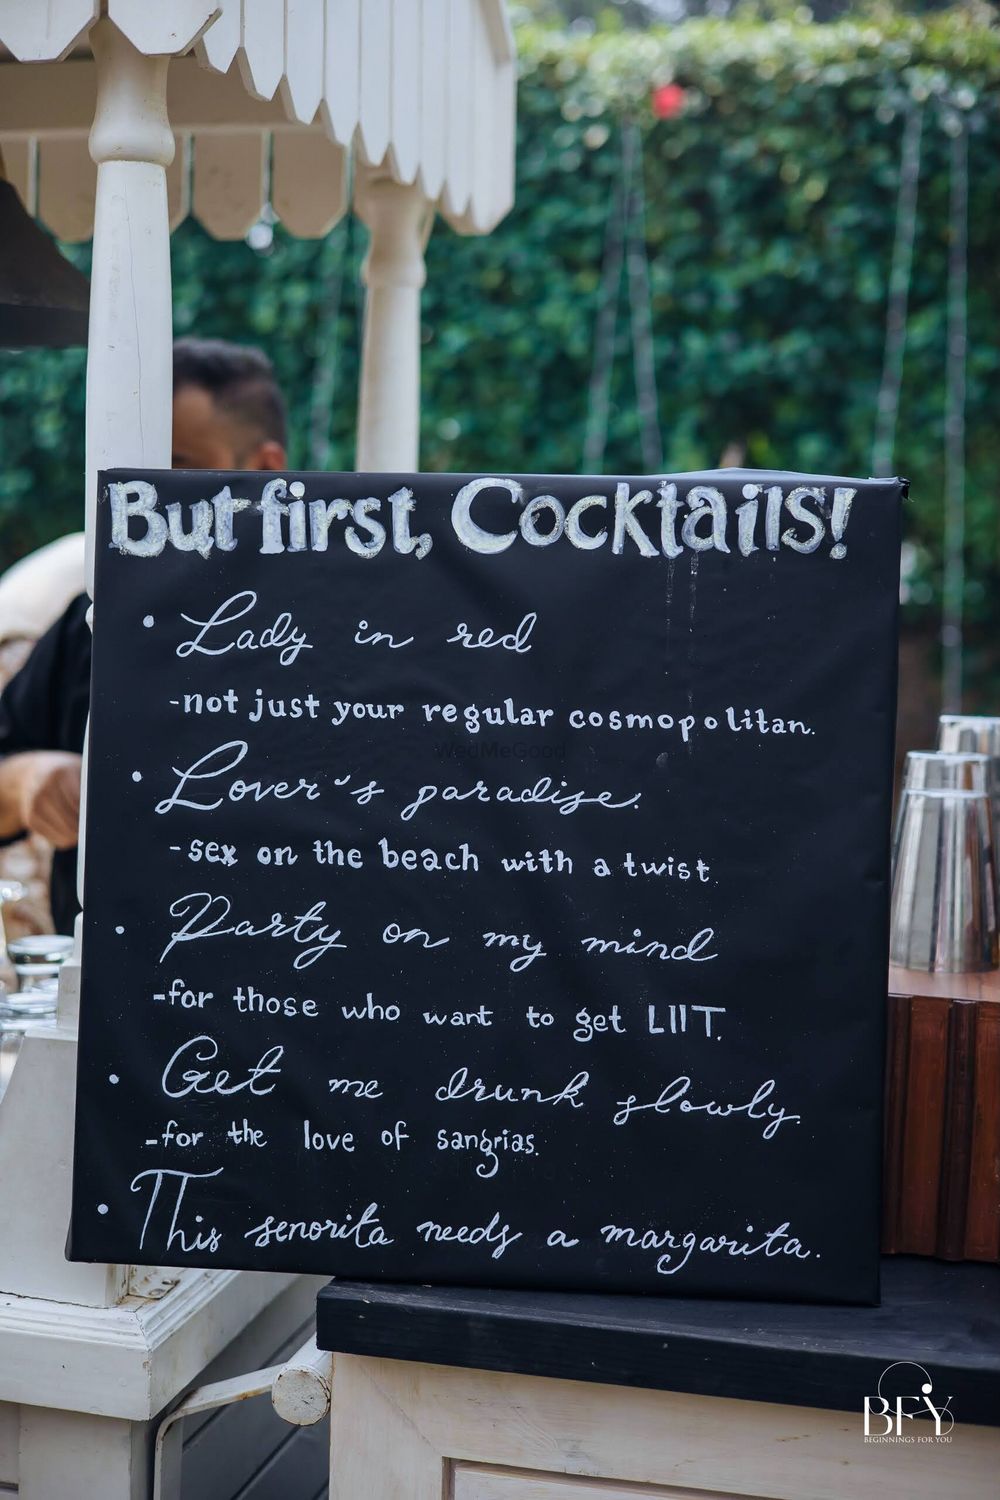 But first, Cocktails!
• Lady in red
-not just your regular cosmopolitan.
• Lover's paradise.
-sex on the beach with a twist.
• Party on my mind
-for those who want to get LIIT.
• Get me drunk slowly.
-for the love of sangrias.
• This senorita needs a margarita.
WedMeGood
BFY
BEGINNINGS FOR YOU